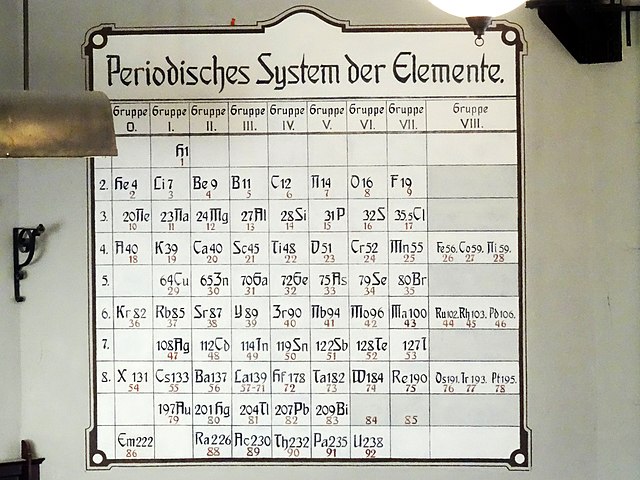 Periodisches System der Elemente.
Gruppe 0. Gruppe I. Gruppe II. Gruppe III. Gruppe IV. Gruppe V. Gruppe VI. Gruppe VII. Gruppe VIII.
H1
1
2. He 4 Li 7 Be 9 B 11 C 12 N 14 O 16 F 19
2 3 4 5 6 7 8 9
3. 20Ne 23Na 24Mg 27Al 28Si 31P 32S 35,5Cl
10 11 12 13 14 15 16 17
4. A40 K39 Ca40 Sc45 Ti48 V51 Cr52 Mn55 Fe56. Co59. Ni59.
18 19 20 21 22 23 24 25 26 27 28
5. 64Cu 65Zn 70Ga 72Ge 75As 79Se 80Br
29 30 31 32 33 34 35
6. Kr82 Rb85 Sr87 Y89 Zr90 Nb94 Mo96 Ma100 Ru102. Rh103. Pd106.
36 37 38 39 40 41 42 43 44 45 46
7. 108Ag 112Cd 114In 119Sn 122Sb 128Te 127I
47 48 49 50 51 52 53
8. X 131 Cs133 Ba137 La139 Hf178 Ta182 W184 Re190 Os191. Ir193. Pt195.
54 55 56 57-71 72 73 74 75 76 77 78
197Au 201Hg 204Tl 207Pb 209Bi
79 80 81 82 83 84 85
Em222 Ra226 Ac230 Th232 Pa235 U238
86 88 89 90 91 92